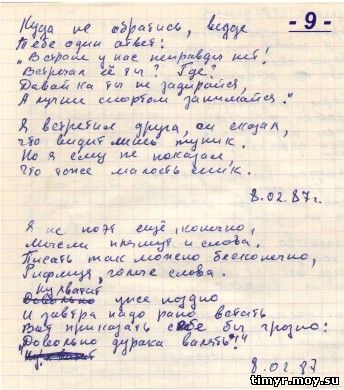 - 9 -
Куда не обратись, везде
Тебе один ответ:
"В стране у нас неправды нет!
Встречал её ты? Где?
Давай ка ты не задирайся,
А лучше спортом занимайся."
Я встретил друга, он сказал,
что видит лишь тупик.
Но я ему не показал,
Что тоже малость сник.
8.02.87г.
Я не поэт ещё, конечно,
Мысли пляшут и слова.
Писать так можно бесконечно,
Рифмуя, голые слова.
Но хватит
Довольно уже поздно
И завтра надо рано встать
Вот приказать себе бы грозно:
"Довольно дурака валять!"
8.02.87
timyr.moy.su